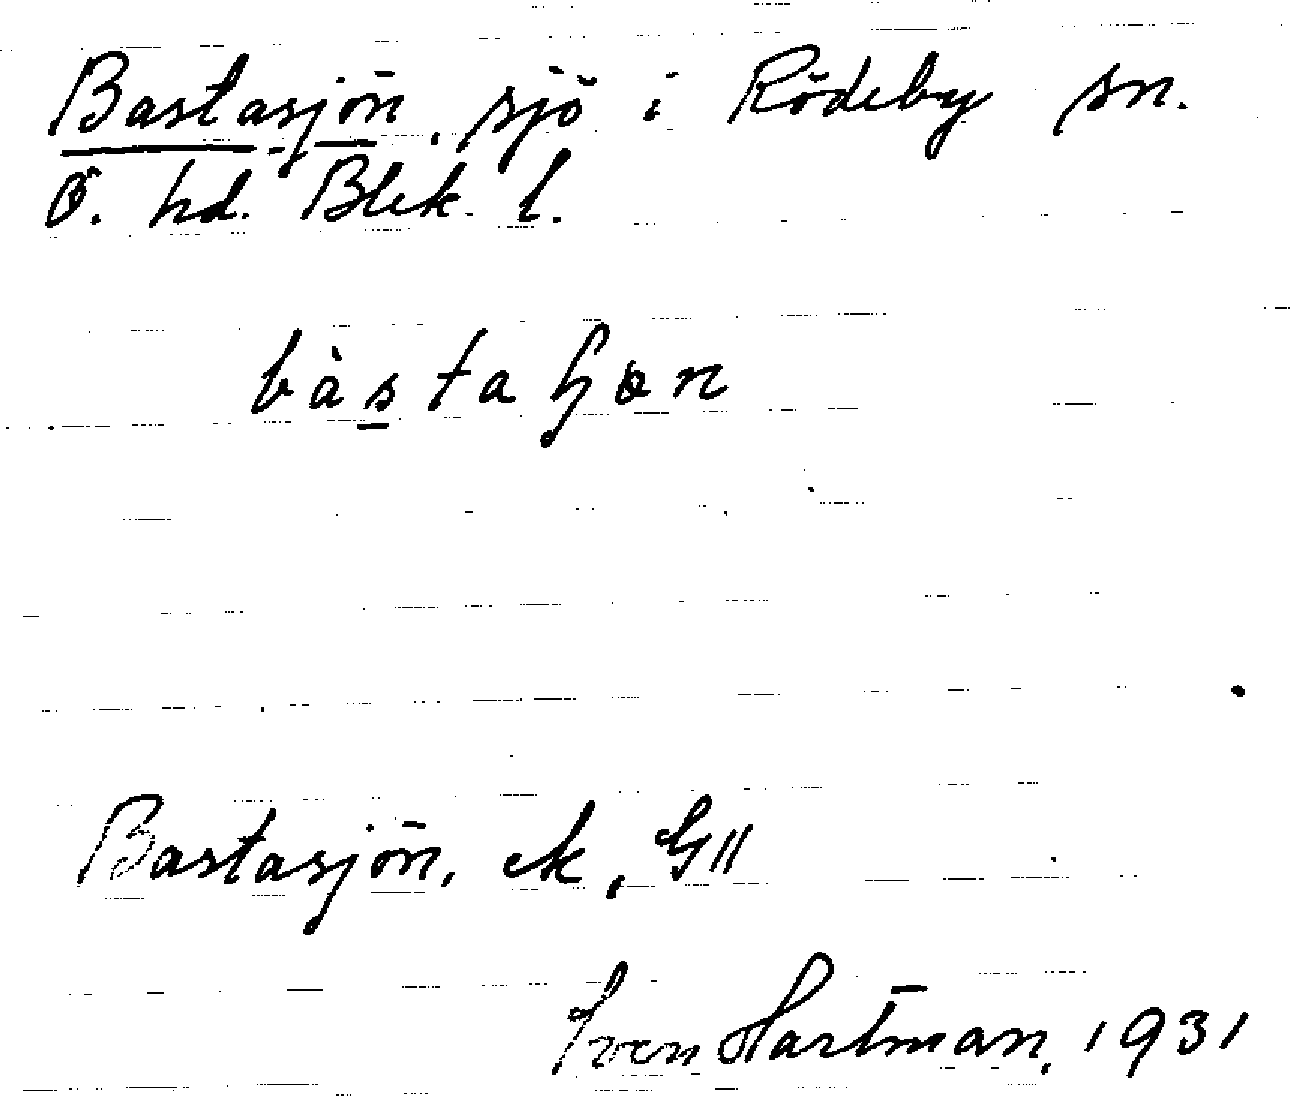 Bastasjön, sjö i Rödeby sn.
Ö. hd. Blek. l.
bàstaɧɵn
Bastasjön, ek, GII
Sven Hartman, 1931